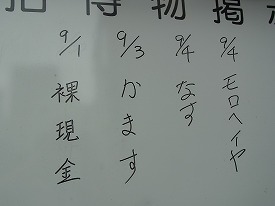 拾得物掲示
9/1 裸現金
9/3 かます
9/4 なす
9/4 モロヘイヤ